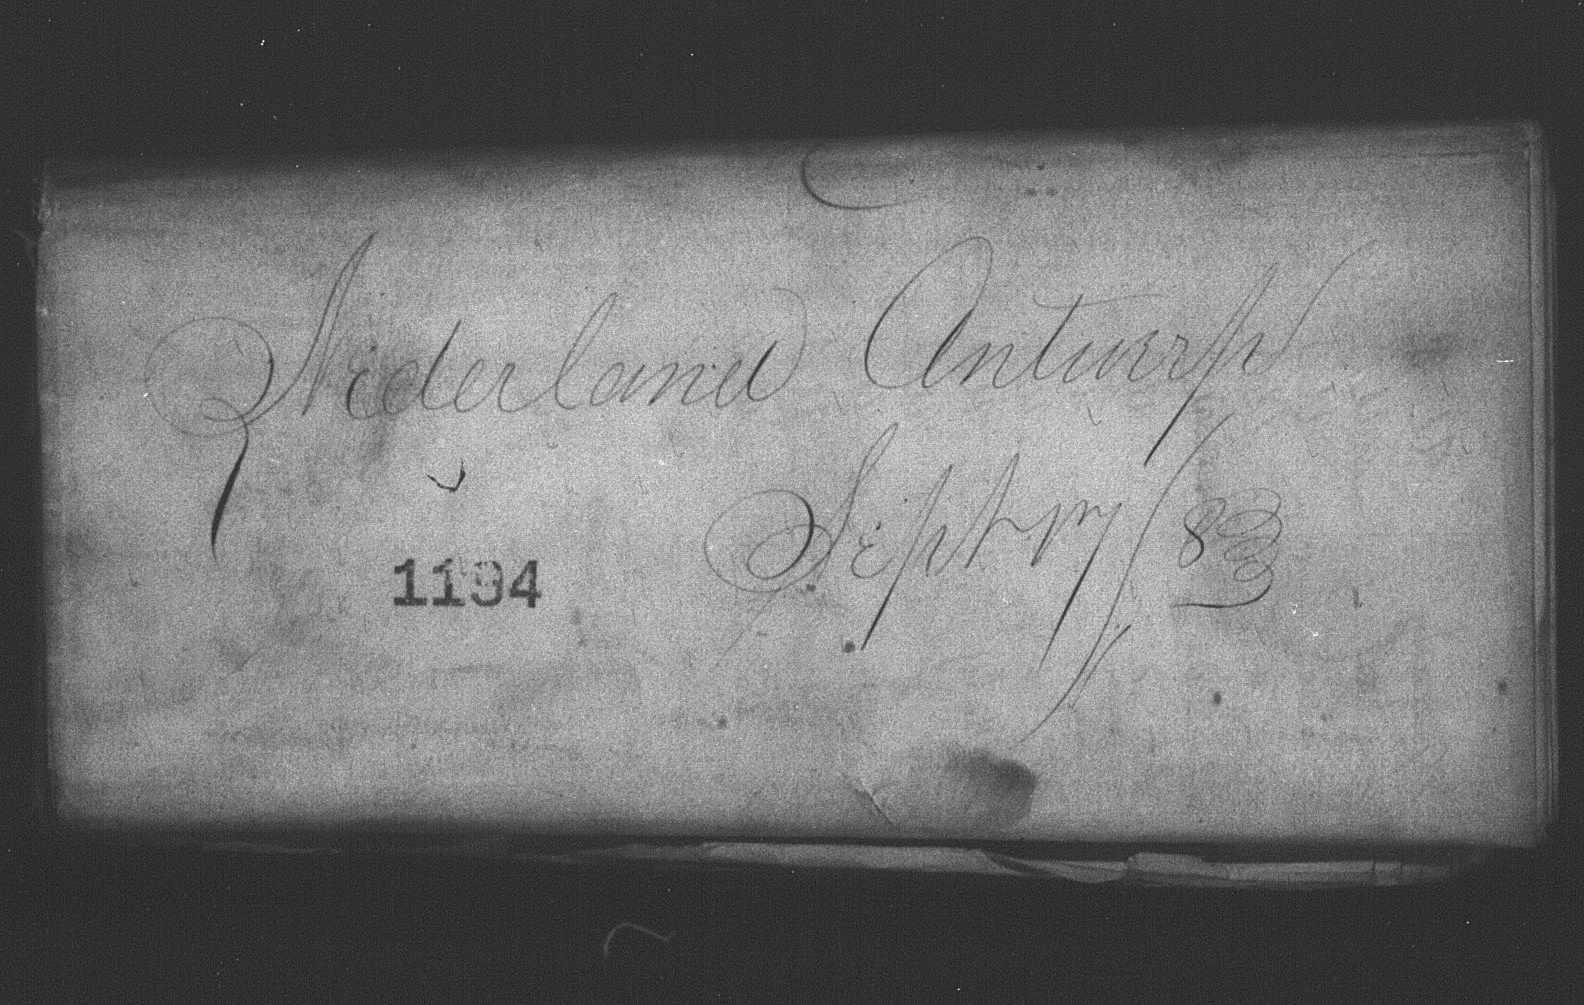 Nederland Antwerp
Sept 17/83
1194